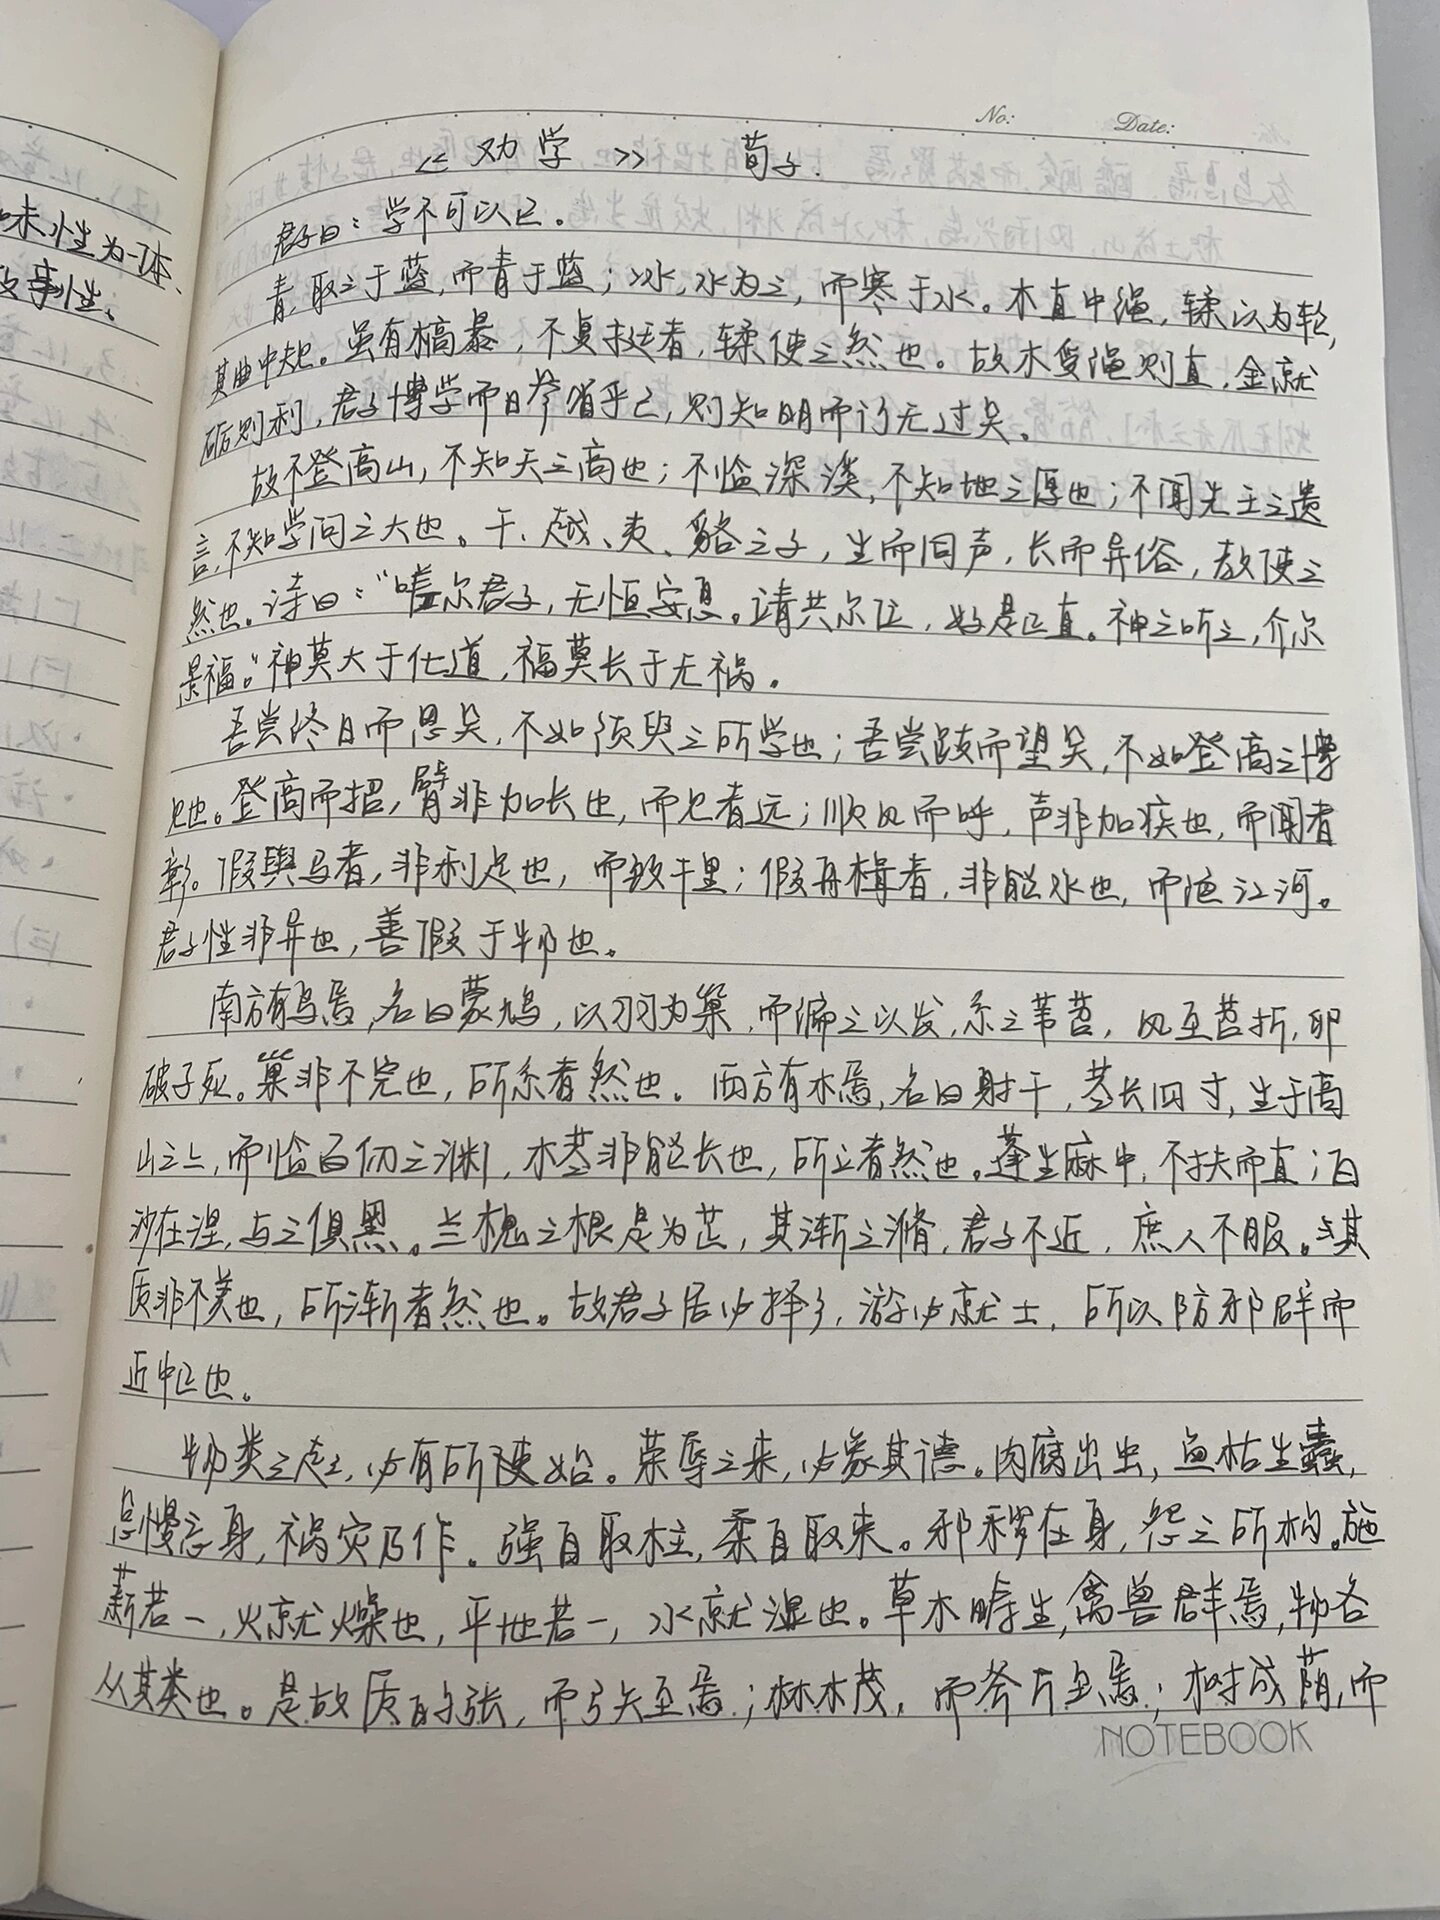 No:
Date:
《劝学》 荀子.
君子曰：学不可以已。
青，取之于蓝，而青于蓝；冰，水为之，而寒于水。木直中绳，𫐓以为轮，
其曲中规。虽有槁暴，不复挺者，𫐓使之然也。故木受绳则直，金就
砺则利，君子博学而日参省乎己，则知明而行无过矣。
故不登高山，不知天之高也；不临深溪，不知地之厚也；不闻先王之遗
言，不知学问之大也。干、越、夷、貉之子，生而同声，长而异俗，教使之
然也。诗曰：“嗟尔君子，无恒安息。靖共尔位，好是正直。神之听之，介尔
景福。”神莫大于化道，福莫长于无祸。
吾尝终日而思矣，不如须臾之所学也；吾尝跂而望矣，不如登高之博
见也。登高而招，臂非加长也，而见者远；顺风而呼，声非加疾也，而闻者
彰。假舆马者，非利足也，而致千里；假舟楫者，非能水也，而绝江河。
君子性非异也，善假于物也。
南方有鸟焉，名曰蒙鸠，以羽为巢，而编之以发，系之苇苕，风至苕折，卵
破子死。巢非不完也，所系者然也。西方有木焉，名曰射干，茎长四寸，生于高
山之上，而临百仞之渊，木茎非能长也，所立者然也。蓬生麻中，不扶而直；白
沙在涅，与之俱黑。兰槐之根是为芷，其渐之滫，君子不近，庶人不服。其
质非不美也，所渐者然也。故君子居必择乡，游必就士，所以防邪辟而
近中正也。
物类之起，必有所始。荣辱之来，必象其德。肉腐出虫，鱼枯生蠹，
怠慢忘身，祸灾乃作。强自取柱，柔自取束。邪秽在身，怨之所构。施
薪若一，火就燥也，平地若一，水就湿也。草木畴生，禽兽群焉，物各
从其类也。是故质的张，而弓矢至焉；林木茂，而斧斤至焉；树成荫，而
NOTEBOOK
味性为一体、
故事性、